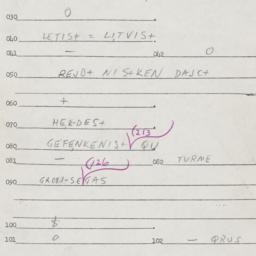 030 0
040 LETIST = LITVIST
041 — 042 0
050 REJDT NISTKEN DAJCT
060 +
070 HEKDEST
213
080 GEFENKENIST QU
126
081 — 082 TURME
090 GROBA-SEGAS
100 $
101 0 102 — QRUS